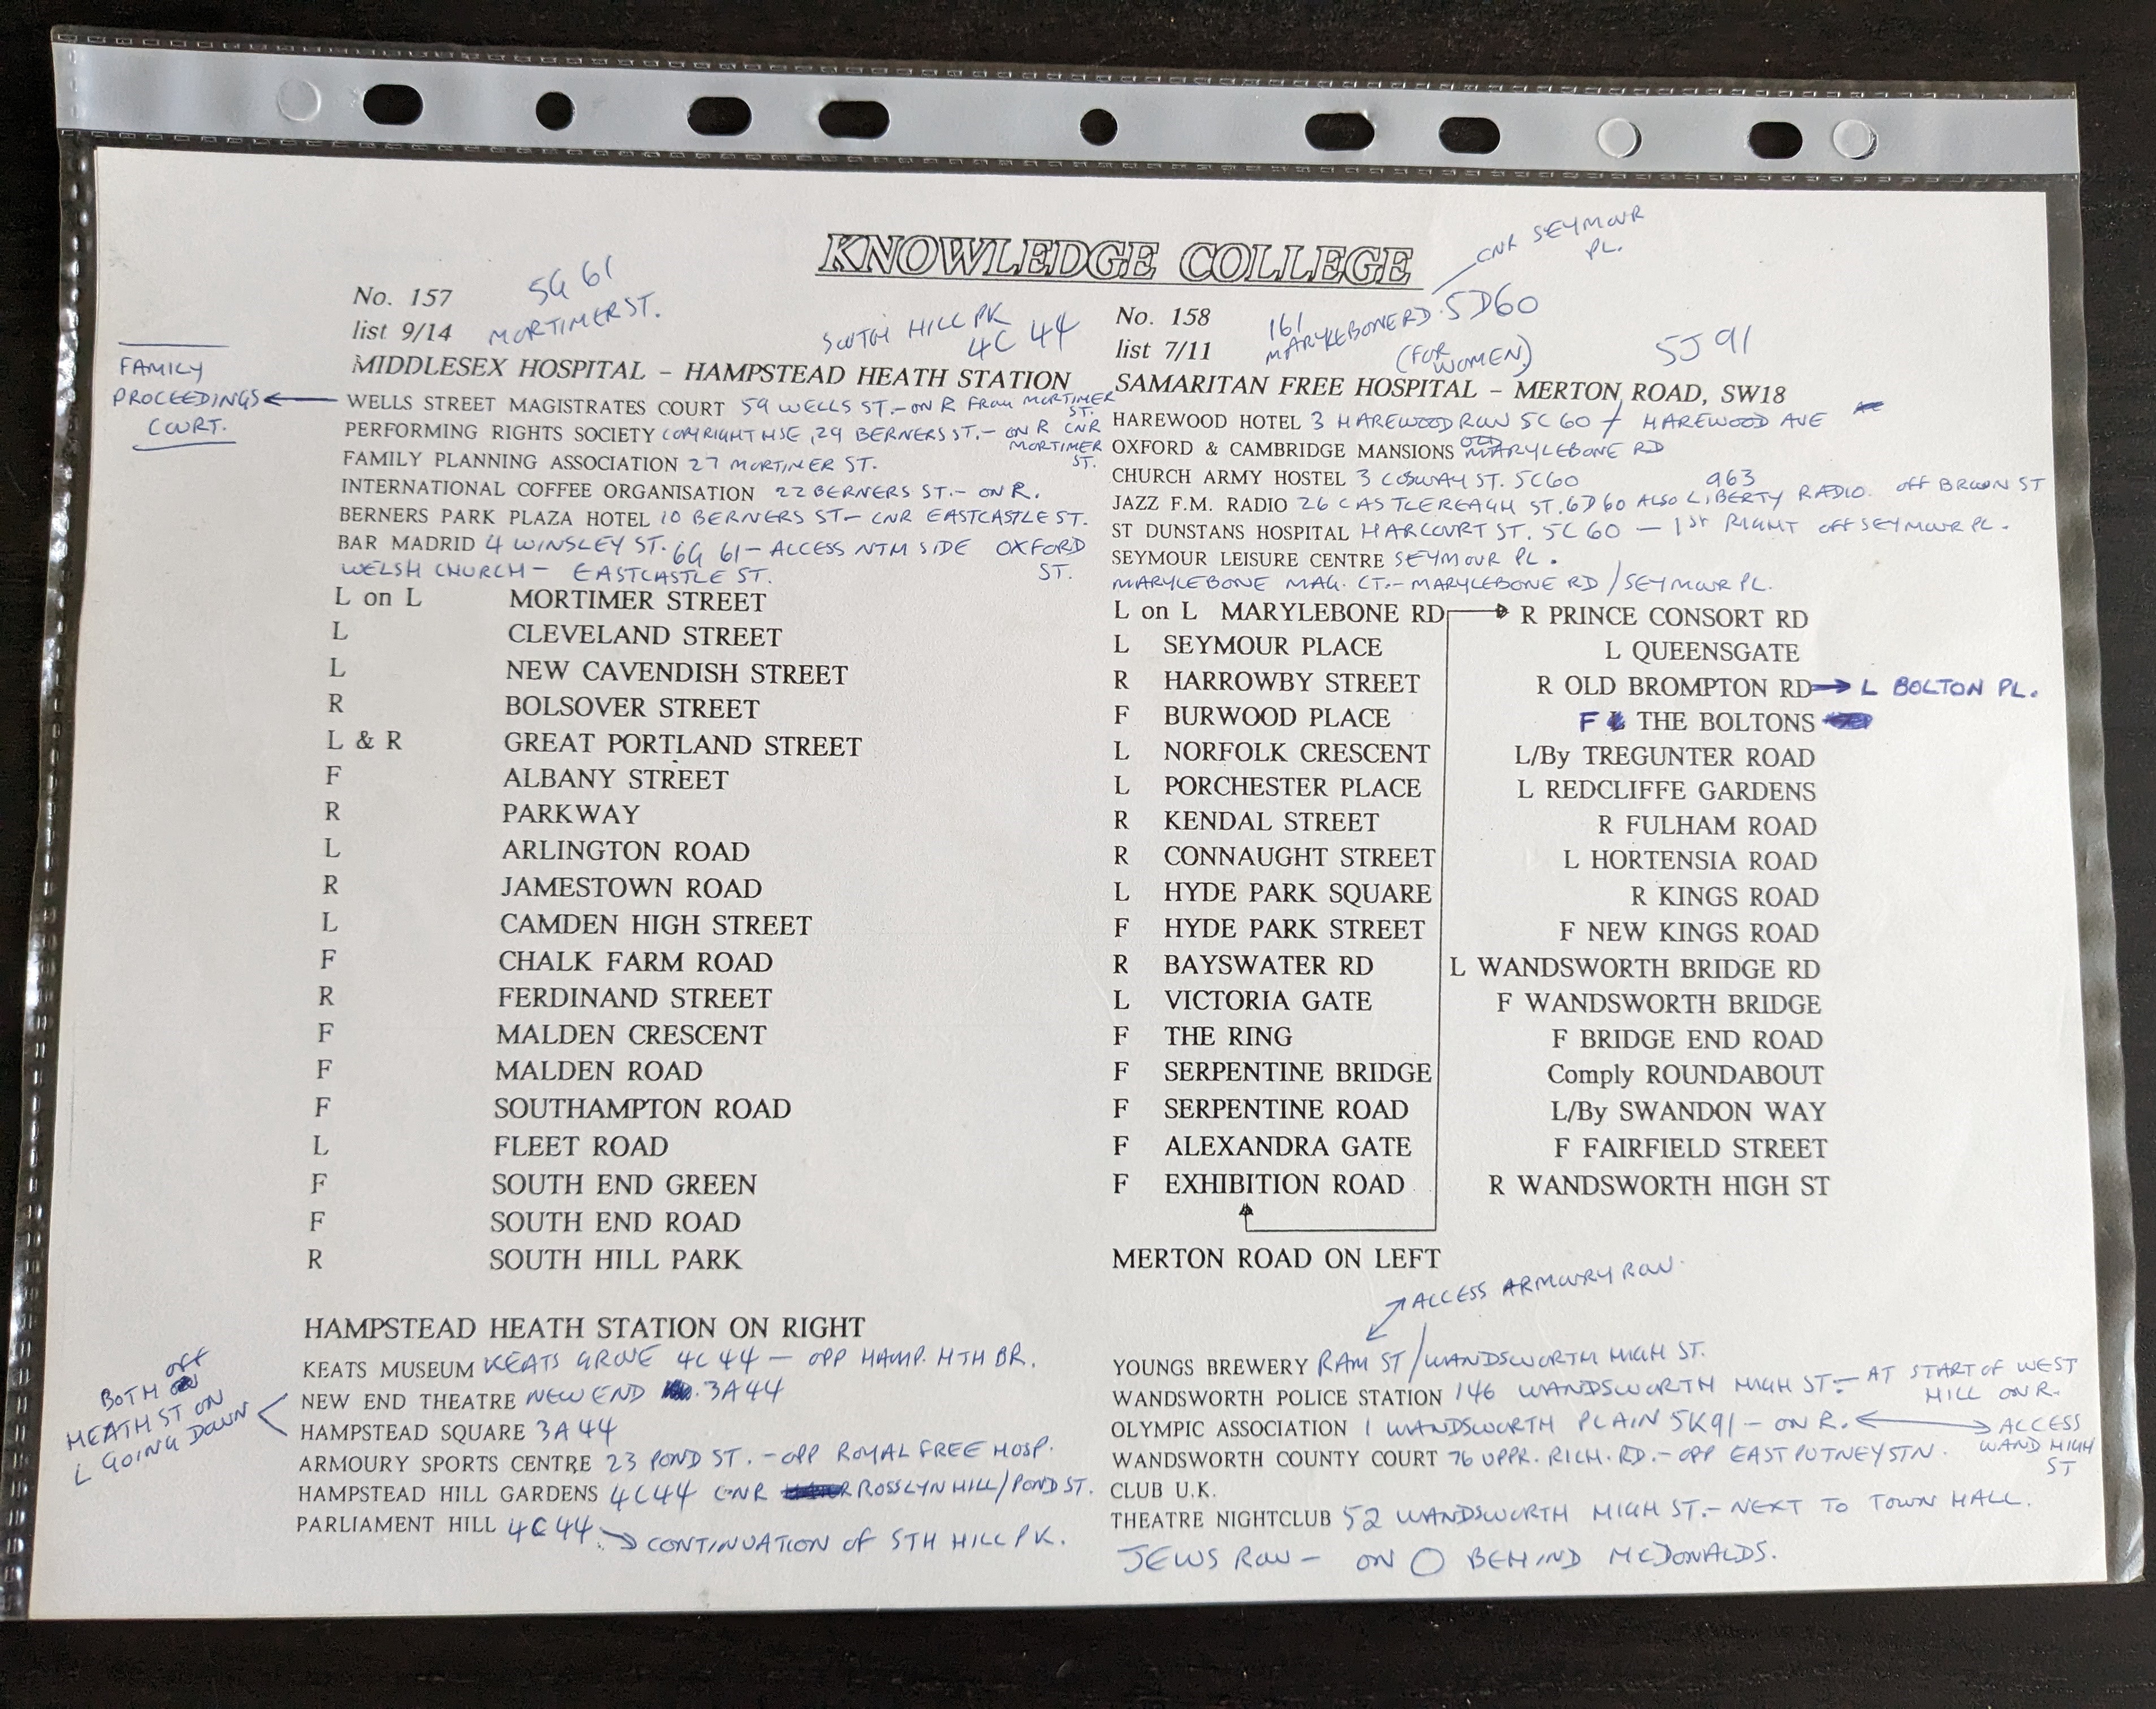 KNOWLEDGE COLLEGE
No. 157 5G 61
list 9/14 MORTIMER ST. SOUTH HILL PK 4C 44
MIDDLESEX HOSPITAL - HAMPSTEAD HEATH STATION
FAMILY PROCEEDINGS COURT.
WELLS STREET MAGISTRATES COURT 59 WELLS ST. - ON R FROM MORTIMER ST.
PERFORMING RIGHTS SOCIETY COPYRIGHT HSE, 29 BERNERS ST. - ON R CNR MORTIMER ST.
FAMILY PLANNING ASSOCIATION 27 MORTIMER ST.
INTERNATIONAL COFFEE ORGANISATION 22 BERNERS ST. - ON R.
BERNERS PARK PLAZA HOTEL 10 BERNERS ST - CNR EASTCASTLE ST.
BAR MADRID 4 WINSLEY ST. 6G 61 - ACCESS NTH SIDE OXFORD ST.
WELSH CHURCH - EASTCASTLE ST.
L on L MORTIMER STREET
L CLEVELAND STREET
L NEW CAVENDISH STREET
R BOLSOVER STREET
L & R GREAT PORTLAND STREET
F ALBANY STREET
R PARKWAY
L ARLINGTON ROAD
R JAMESTOWN ROAD
L CAMDEN HIGH STREET
F CHALK FARM ROAD
R FERDINAND STREET
F MALDEN CRESCENT
F MALDEN ROAD
F SOUTHAMPTON ROAD
L FLEET ROAD
F SOUTH END GREEN
F SOUTH END ROAD
R SOUTH HILL PARK
HAMPSTEAD HEATH STATION ON RIGHT
KEATS MUSEUM KEATS GROVE 4C 44 - OPP HAMP. HTH BR.
NEW END THEATRE NEW END 3A44
HAMPSTEAD SQUARE 3A44
BOTH OFF
HEATH ST ON
L GOING DOWN
ARMOURY SPORTS CENTRE 23 POND ST. - OPP ROYAL FREE HOSP.
HAMPSTEAD HILL GARDENS 4C44 CNR ROSSLYN HILL/POND ST.
PARLIAMENT HILL 4C44 → CONTINUATION OF STH HILL PK.
No. 158 161 MARYLEBONE RD. 5D60 CNR SEYMOUR PL.
list 7/11 (FOR WOMEN) 5J 91
SAMARITAN FREE HOSPITAL - MERTON ROAD, SW18
HAREWOOD HOTEL 3 HAREWOOD ROW 5C 60 / HAREWOOD AVE
OXFORD & CAMBRIDGE MANSIONS OLD MARYLEBONE RD
CHURCH ARMY HOSTEL 3 COSWAY ST. 5C60
JAZZ F.M. RADIO 26 CASTLEREAGH ST. 6D60 ALSO LIBERTY RADIO. 963 OFF BROWN ST
ST DUNSTANS HOSPITAL HARCOURT ST. 5C 60 - 1ST RIGHT OFF SEYMOUR PL.
SEYMOUR LEISURE CENTRE SEYMOUR PL.
MARYLEBONE MAG. CT. - MARYLEBONE RD / SEYMOUR PL.
L on L MARYLEBONE RD
L SEYMOUR PLACE
R HARROWBY STREET
F BURWOOD PLACE
L NORFOLK CRESCENT
L PORCHESTER PLACE
R KENDAL STREET
R CONNAUGHT STREET
L HYDE PARK SQUARE
F HYDE PARK STREET
R BAYSWATER RD
L VICTORIA GATE
F THE RING
F SERPENTINE BRIDGE
F SERPENTINE ROAD
F ALEXANDRA GATE
F EXHIBITION ROAD
R PRINCE CONSORT RD
L QUEENSGATE
R OLD BROMPTON RD → L BOLTON PL.
F THE BOLTONS
L/By TREGUNTER ROAD
L REDCLIFFE GARDENS
R FULHAM ROAD
L HORTENSIA ROAD
R KINGS ROAD
F NEW KINGS ROAD
L WANDSWORTH BRIDGE RD
F WANDSWORTH BRIDGE
F BRIDGE END ROAD
Comply ROUNDABOUT
L/By SWANDON WAY
F FAIRFIELD STREET
R WANDSWORTH HIGH ST
MERTON ROAD ON LEFT
ACCESS ARMOURY ROW.
YOUNGS BREWERY RAM ST / WANDSWORTH HIGH ST.
WANDSWORTH POLICE STATION 146 WANDSWORTH HIGH ST. - AT START OF WEST HILL ON R.
OLYMPIC ASSOCIATION 1 WANDSWORTH PLAIN 5K91 - ON R. ACCESS WAND HIGH ST
WANDSWORTH COUNTY COURT 76 UPPR. RICH. RD. - OPP EAST PUTNEY STN.
CLUB U.K.
THEATRE NIGHTCLUB 52 WANDSWORTH HIGH ST. - NEXT TO TOWN HALL.
JEWS ROW - ON O BEHIND MCDONALDS.